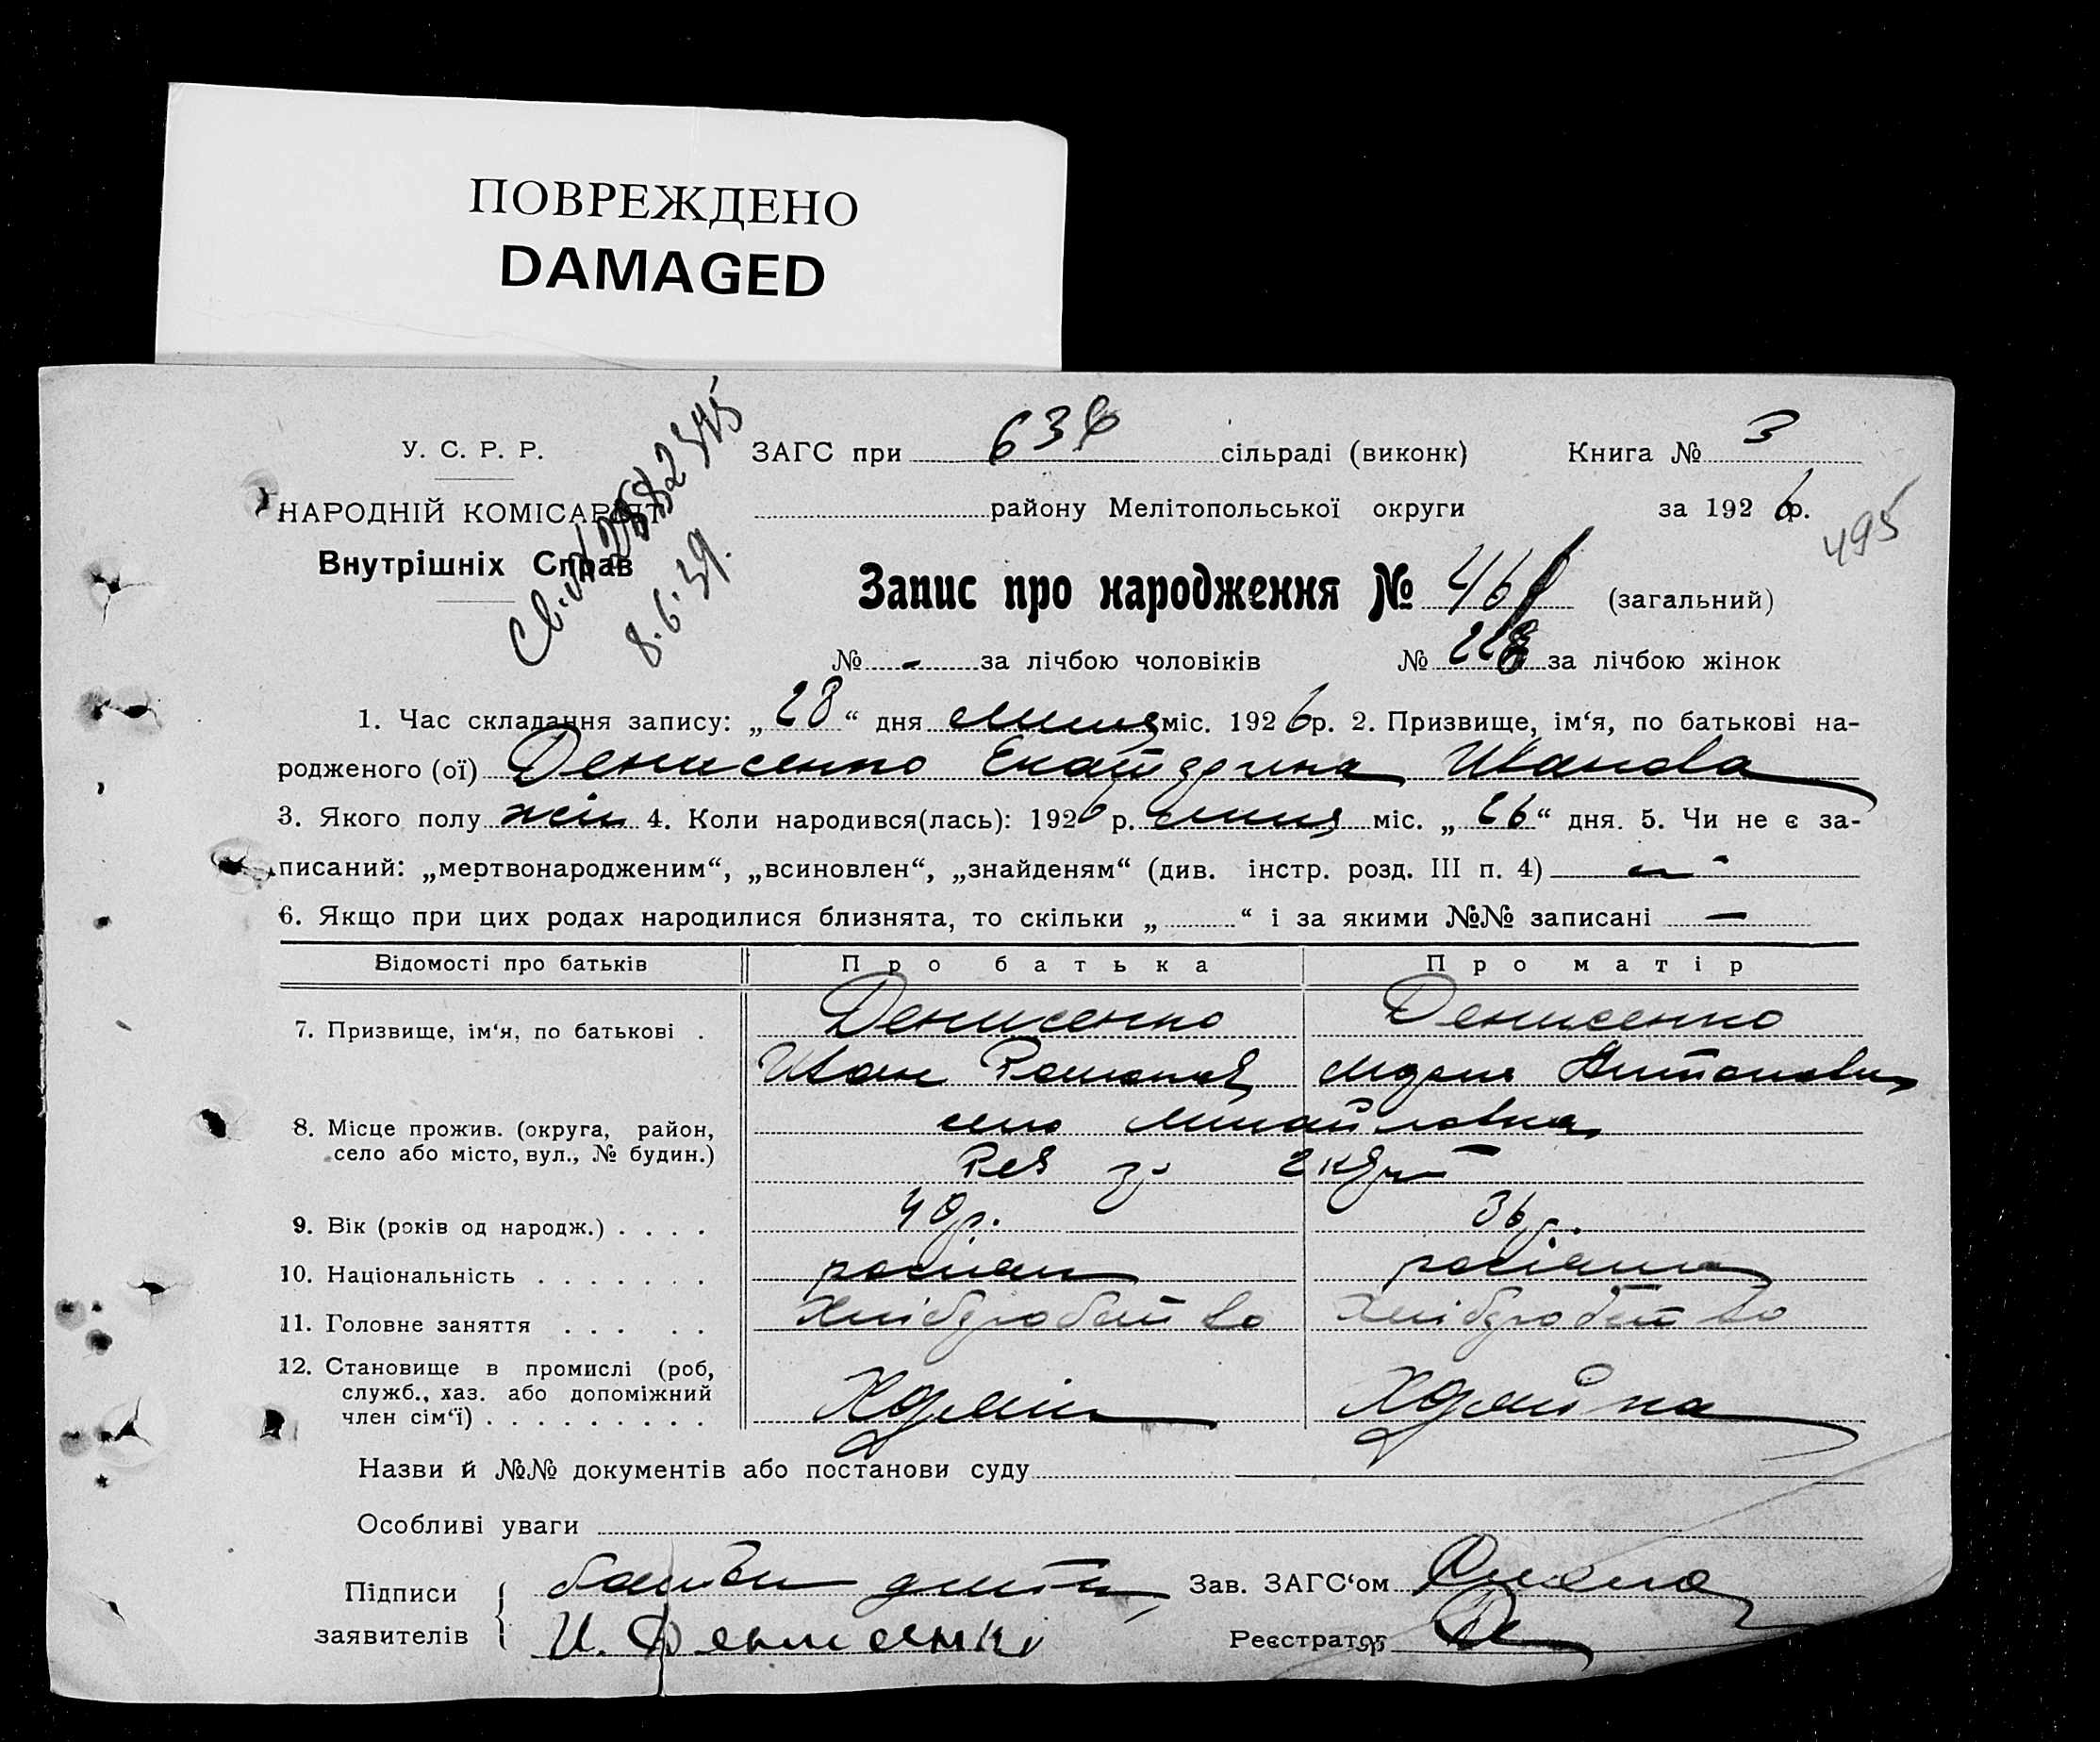 ПОВРЕЖДЕНО
DAMAGED
У. С. Р. Р. ЗАГС при сільраді (виконк) Книга № 3
НАРОДНІЙ КОМІСАРІЯТ району Мелітопольської округи за 1926 р.
495
Внутрішніх Справ
8.6.39.
Запис про народження № (загальний)
№ - за лічбою чоловіків № за лічбою жінок
1. Час складання запису: „28“ дня липня міс. 1926 р. 2. Призвище, ім‘я, по батькові на-
родженого (ої) Денисенко Екатерина Иванова
3. Якого полу жін 4. Коли народився(лась): 1926 р. липня міс. „26“ дня. 5. Чи не є за-
писаний: „мертвонародженим“, „всиновлен“, „знайденям“ (див. інстр. розд. III п. 4)
6. Якщо при цих родах народилися близнята, то скільки „ “ і за якими №№ записані —
Відомості про батьків Про батька Про матір
7. Призвище, ім‘я, по батькові . Денисенко Денисенко
Иван Романов Мария Антоновна
8. Місце прожив. (округа, район, село Михайловка
село або місто, вул., № будин.)
9. Вік (років од народж.) . . . . 40 р. 36 р.
10. Національність . . . . . . . росіян росіянка
11. Головне заняття . . . . . Хліборобство Хліборобство
12. Становище в промислі (роб,
служб., хаз. або допоміжний
член сім‘ї) . . . . . . . . .
Назви й №№ документів або постанови суду
Особливі уваги
Підписи Зав. ЗАГС‘ом
заявителів И. Денисенко Реєстратор